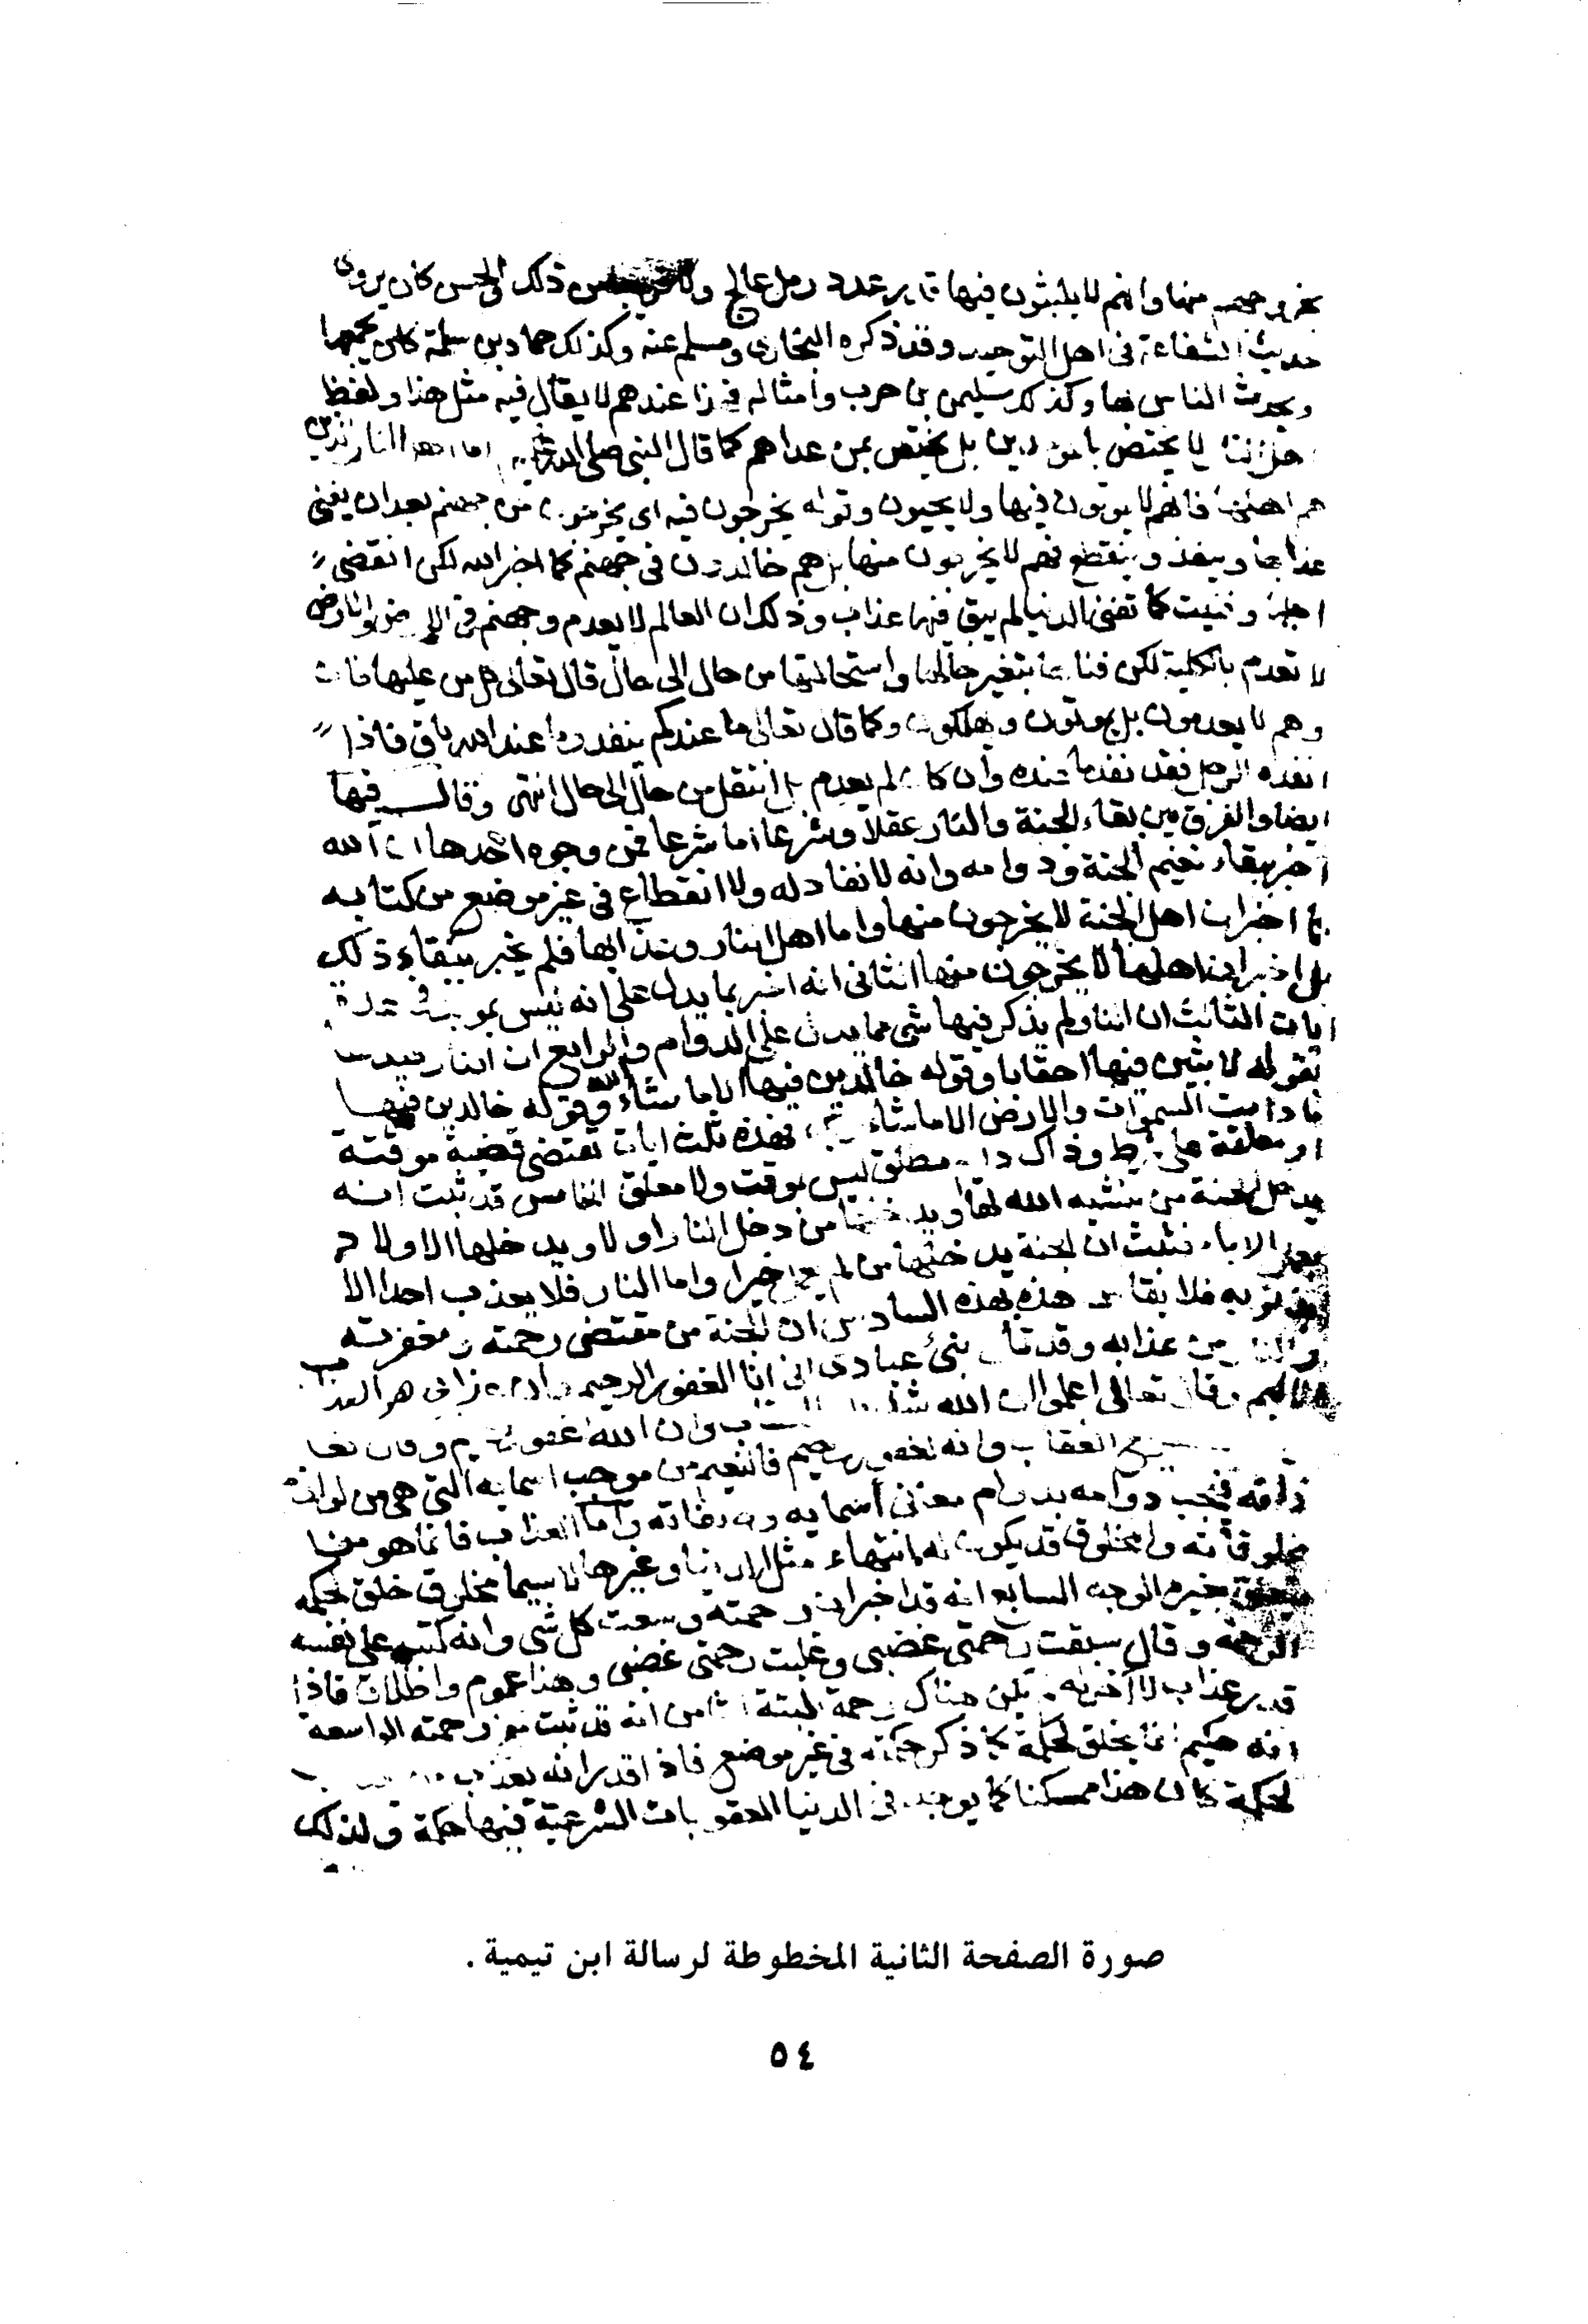 بخروجهم منها وانهم لا يلبثون فيها قدر عدد رمل عالج ذلك الحسن كان يروى
حديث الشفاعة فى اهل التوحيد وقد ذكره البخارى ومسلم عنه وكذلك حماد بن سلمة كان يجمعها
ويحدث الناس بها وكذلك سليمن بن حرب وامثاله فهذا عندهم لا يقال فيه مثل هذا ولفظ
اهل النار لا يختص بالموحدين بل يختص بمن عداهم كما قال النبى صلى الله عليه اما اهل النار الذين
هم اهلها فانهم لا يموتون فيها ولا يحيون وقوله يخرجون فيه اى يخرجون من جهنم بعد ان يفنى
عذابها وينفذ وينقطع فهم لا يخرجون منها بل هم خالدون فى جهنم كما اخبر الله لكن انقضى
اجلها وفنيت كما تفنى الدنيا لم يبق فيها عذاب وذلك ان العالم لا يعدم وجهنم فى الارض والارض
لا تعدم بالكلية لكن فناءها بتغير حالها واستحالتها من حال الى حال قال تعالى كل من عليها فان
وهم لا يعدمون بل يموتون ويهلكون وكما قال تعالى ما عندكم ينفد وما عند الله باق فاذا
انفده الرجل فقد نفد ما عنده وان كان لم يعدم بل انتقل من حال الى حال انتهى وقال فيها
ايضا والفرق بين بقاء الجنة والنار عقلا وشرعا اما شرعا فمن وجوه احدها ان الله
اخبر ببقاء نعيم الجنة ودوامه وانه لا نفاد له ولا انقطاع فى غير موضع من كتابه
كما اخبر ان اهل الجنة لا يخرجون منها واما اهل النار وعذابها فلم يخبر ببقاء ذلك
بل اخبر ان اهلها لا يخرجون منها الثانى انه اخبر بما يدل على انه ليس بموبد فى عدة
ايات الثالث ان النار لم يذكر فيها شى مما يدل على الدوام والرابع ان النار قيدها
بقوله لابثين فيها احقابا وقوله خالدين فيها الا ما شاء الله وقوله خالدين فيها
ما دامت السموات والارض الا ما شاء ربك فهذه ثلث ايات تقتضى قضية موقتة
او معلقة على شرط وذاك دائم مطلق ليس بموقت ولا معلق الخامس قد ثبت انه
يدخل الجنة من ينشيه الله لها ويدخلها من دخل النار اولا ويدخلها الاولاد
بعمل الاباء فثبت ان الجنة يدخلها من لم يعمل خيرا واما النار فلا يعذب احدا الا
بذنوبه فلا يقاس هذه بهذه السادس ان الجنة من مقتضى رحمته ومغفرته
والنار من عذابه وقد قال نبئ عبادى انى انا الغفور الرحيم وان عذابى هو العذاب
الاليم وقال تعالى اعلموا ان الله شديد العقاب وان الله غفور رحيم وقال تعالى
سريع العقاب وانه لغفور رحيم فالنعيم من موجب اسمايه التى هى من لوازم
ذاته فيجب دوامه بدوام معانى أسمايه وصفاته واما العذاب فانما هو من
مخلوقاته والمخلوق قد يكون له انتهاء مثل الدنيا وغيرها لا سيما مخلوق خلق لحكمة
يتعلق بغيره الوجه السابع انه قد اخبر ان رحمته وسعت كل شى وانه كتب على نفسه
الرحمة وقال سبقت رحمتى غضبى وغلبت رحمتى غضبى وهذا عموم واطلاق فاذا
قدر عذاب لا آخر له لم يكن هناك رحمة البتة الثامن انه قد ثبت مع رحمته الواسعة
انه حكيم انما يخلق لحكمة كما ذكر حكمته فى غير موضع فاذا قدر انه يعذب
لحكمة كان هذا ممكنا كما يوجد فى الدنيا العقوبات الشرعية فيها حكمة ولذلك
صورة الصفحة الثانية المخطوطة لرسالة ابن تيمية .
٥٤